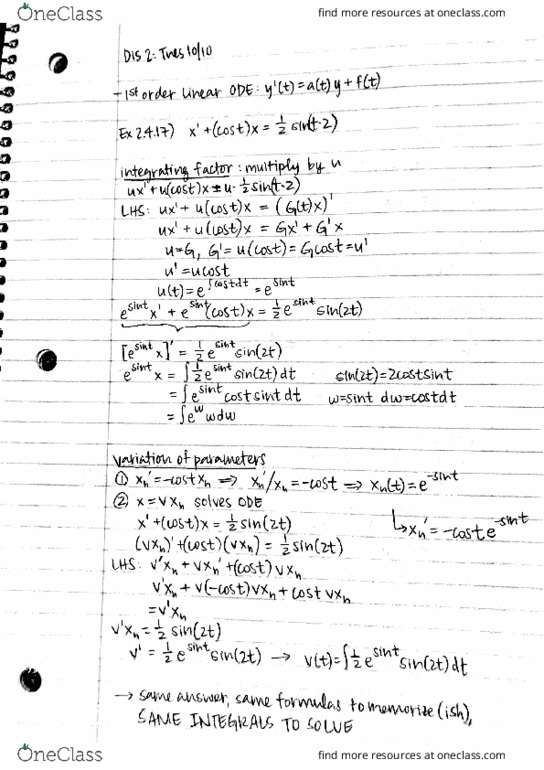 OneClass
find more resources at oneclass.com
Dis 2: Tues 10/10
- 1st order linear ODE: y'(t)=a(t)y+f(t)
Ex 2.4.17) x'+(cost)x=½ sin(t·2)
integrating factor: multiply by u
ux'+u(cost)x = u·½ sin(t·2)
LHS: ux'+u(cost)x = (G(t)x)'
ux'+u(cost)x = Gx'+G'x
u=G, G'=u(cost)=Gcost=u'
u'=ucost
u(t)=e^∫costdt=e^sint
e^sint x' + e^sint(cost)x=½e^sint sin(2t)
[e^sint x]'=½e^sint sin(2t)
e^sint x=∫½e^sint sin(2t)dt sin(2t)=2costsint
=∫e^sint cost sint dt w=sint dw=costdt
=∫e^w wdw
variation of parameters
① xh'=-costxh ⇒ xh'/xh=-cost ⇒ xh(t)=e^-sint
② x=vxh solves ODE
x'+(cost)x=½sin(2t) ↳xh'=-cost e^-sint
(vxh)'+(cost)(vxh)=½sin(2t)
LHS: v'xh+vxh'+(cost)vxh
v'xh+v(-cost)vxh+cost vxh
=v'xh
v'xh=½sin(2t)
v'=½e^sint sin(2t) → v(t)=∫½e^sint sin(2t)dt
→ same answer, same formulas to memorize(ish),
SAME INTEGRALS TO SOLVE
OneClass
find more resources at oneclass.com